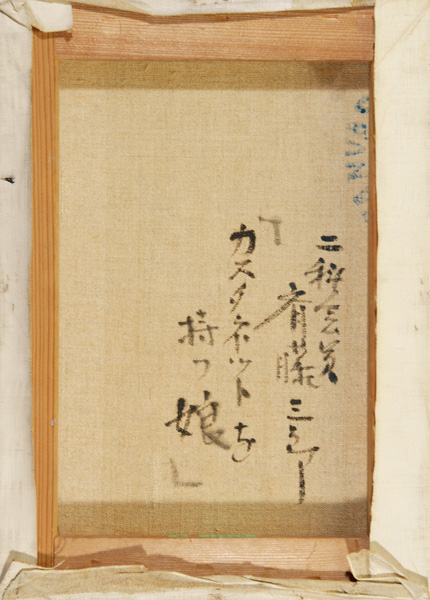 二科会員
斎藤三郎
「カスタネットを
持つ娘」